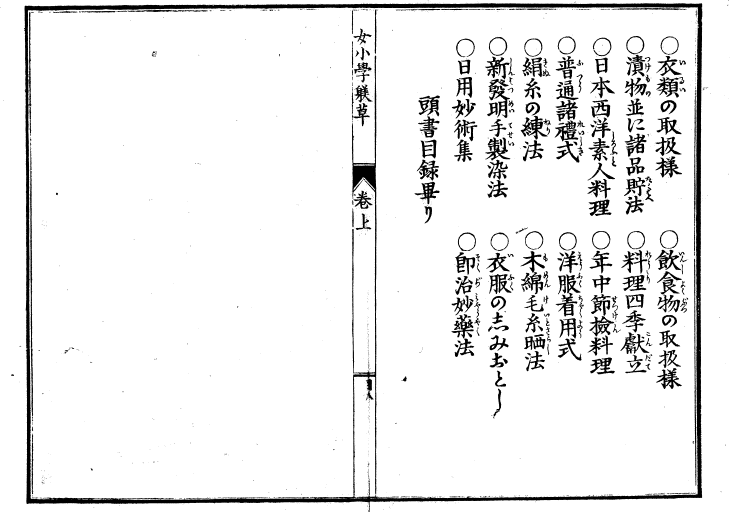 ○衣類の取扱様
○飲食物の取扱様
○漬物並に諸品貯法
○料理四季獻立
○日本西洋素人料理
○年中節撿料理
○普通諸禮式
○洋服着用式
○絹糸の練法
○木綿毛糸晒法
○新發明手製染法
○衣服の志みおとし
○日用妙術集
○即治妙藥法
頭書目録畢り
女小學躾草
卷上